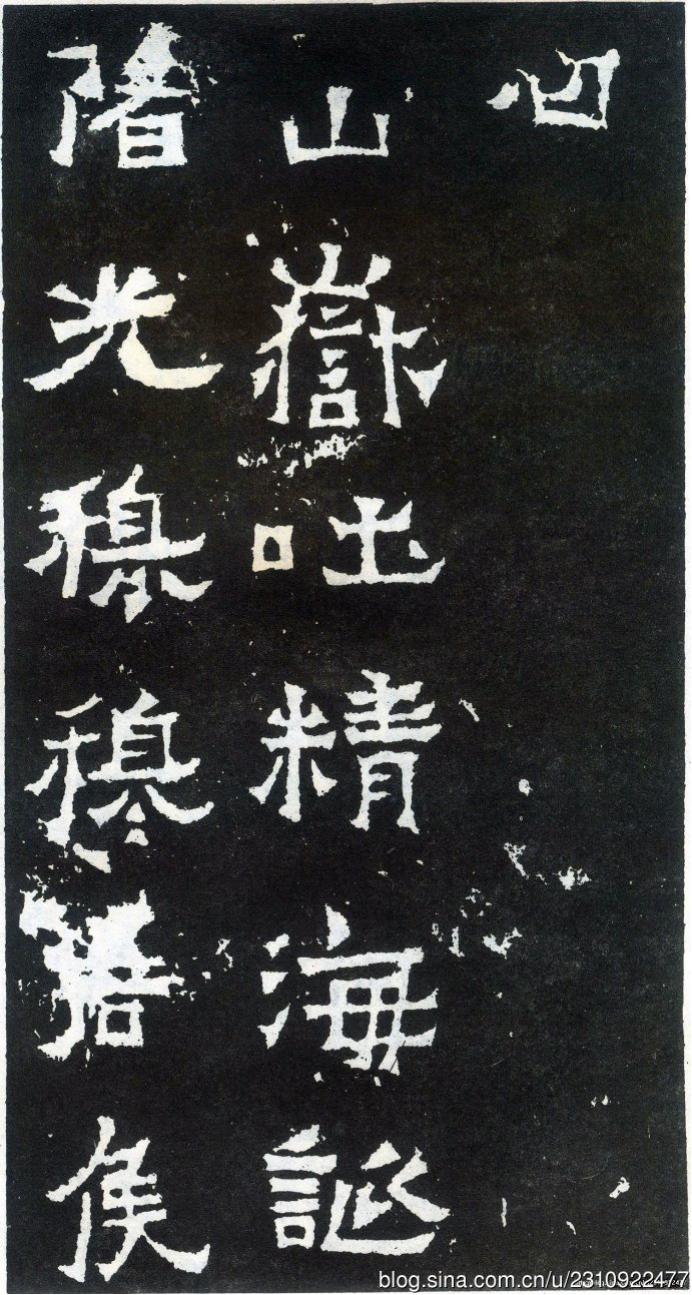 曰
山嶽吐精海誕
陼光穆穆君侯
blog.sina.com.cn/u/2310922477